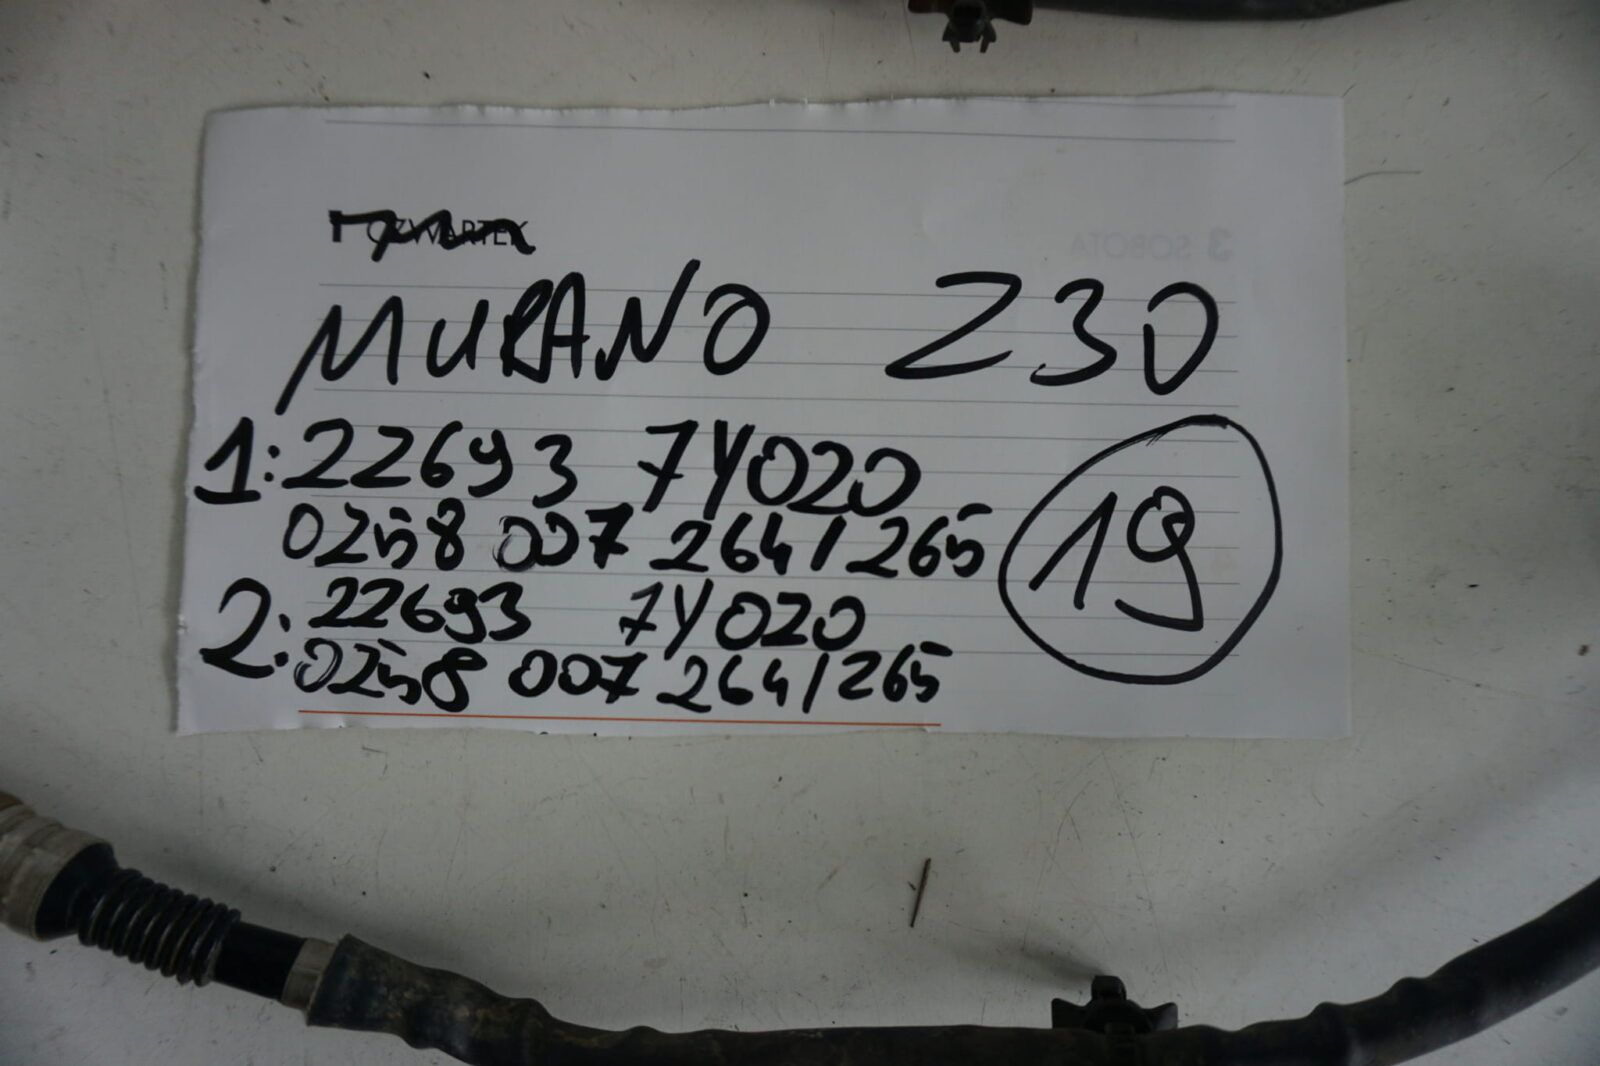 CZWARTEK
3 SOBOTA
MURANO Z30
1: 22693 7Y020
0258 007 264/265
19
2: 22693 7Y020
0258 007 264/265